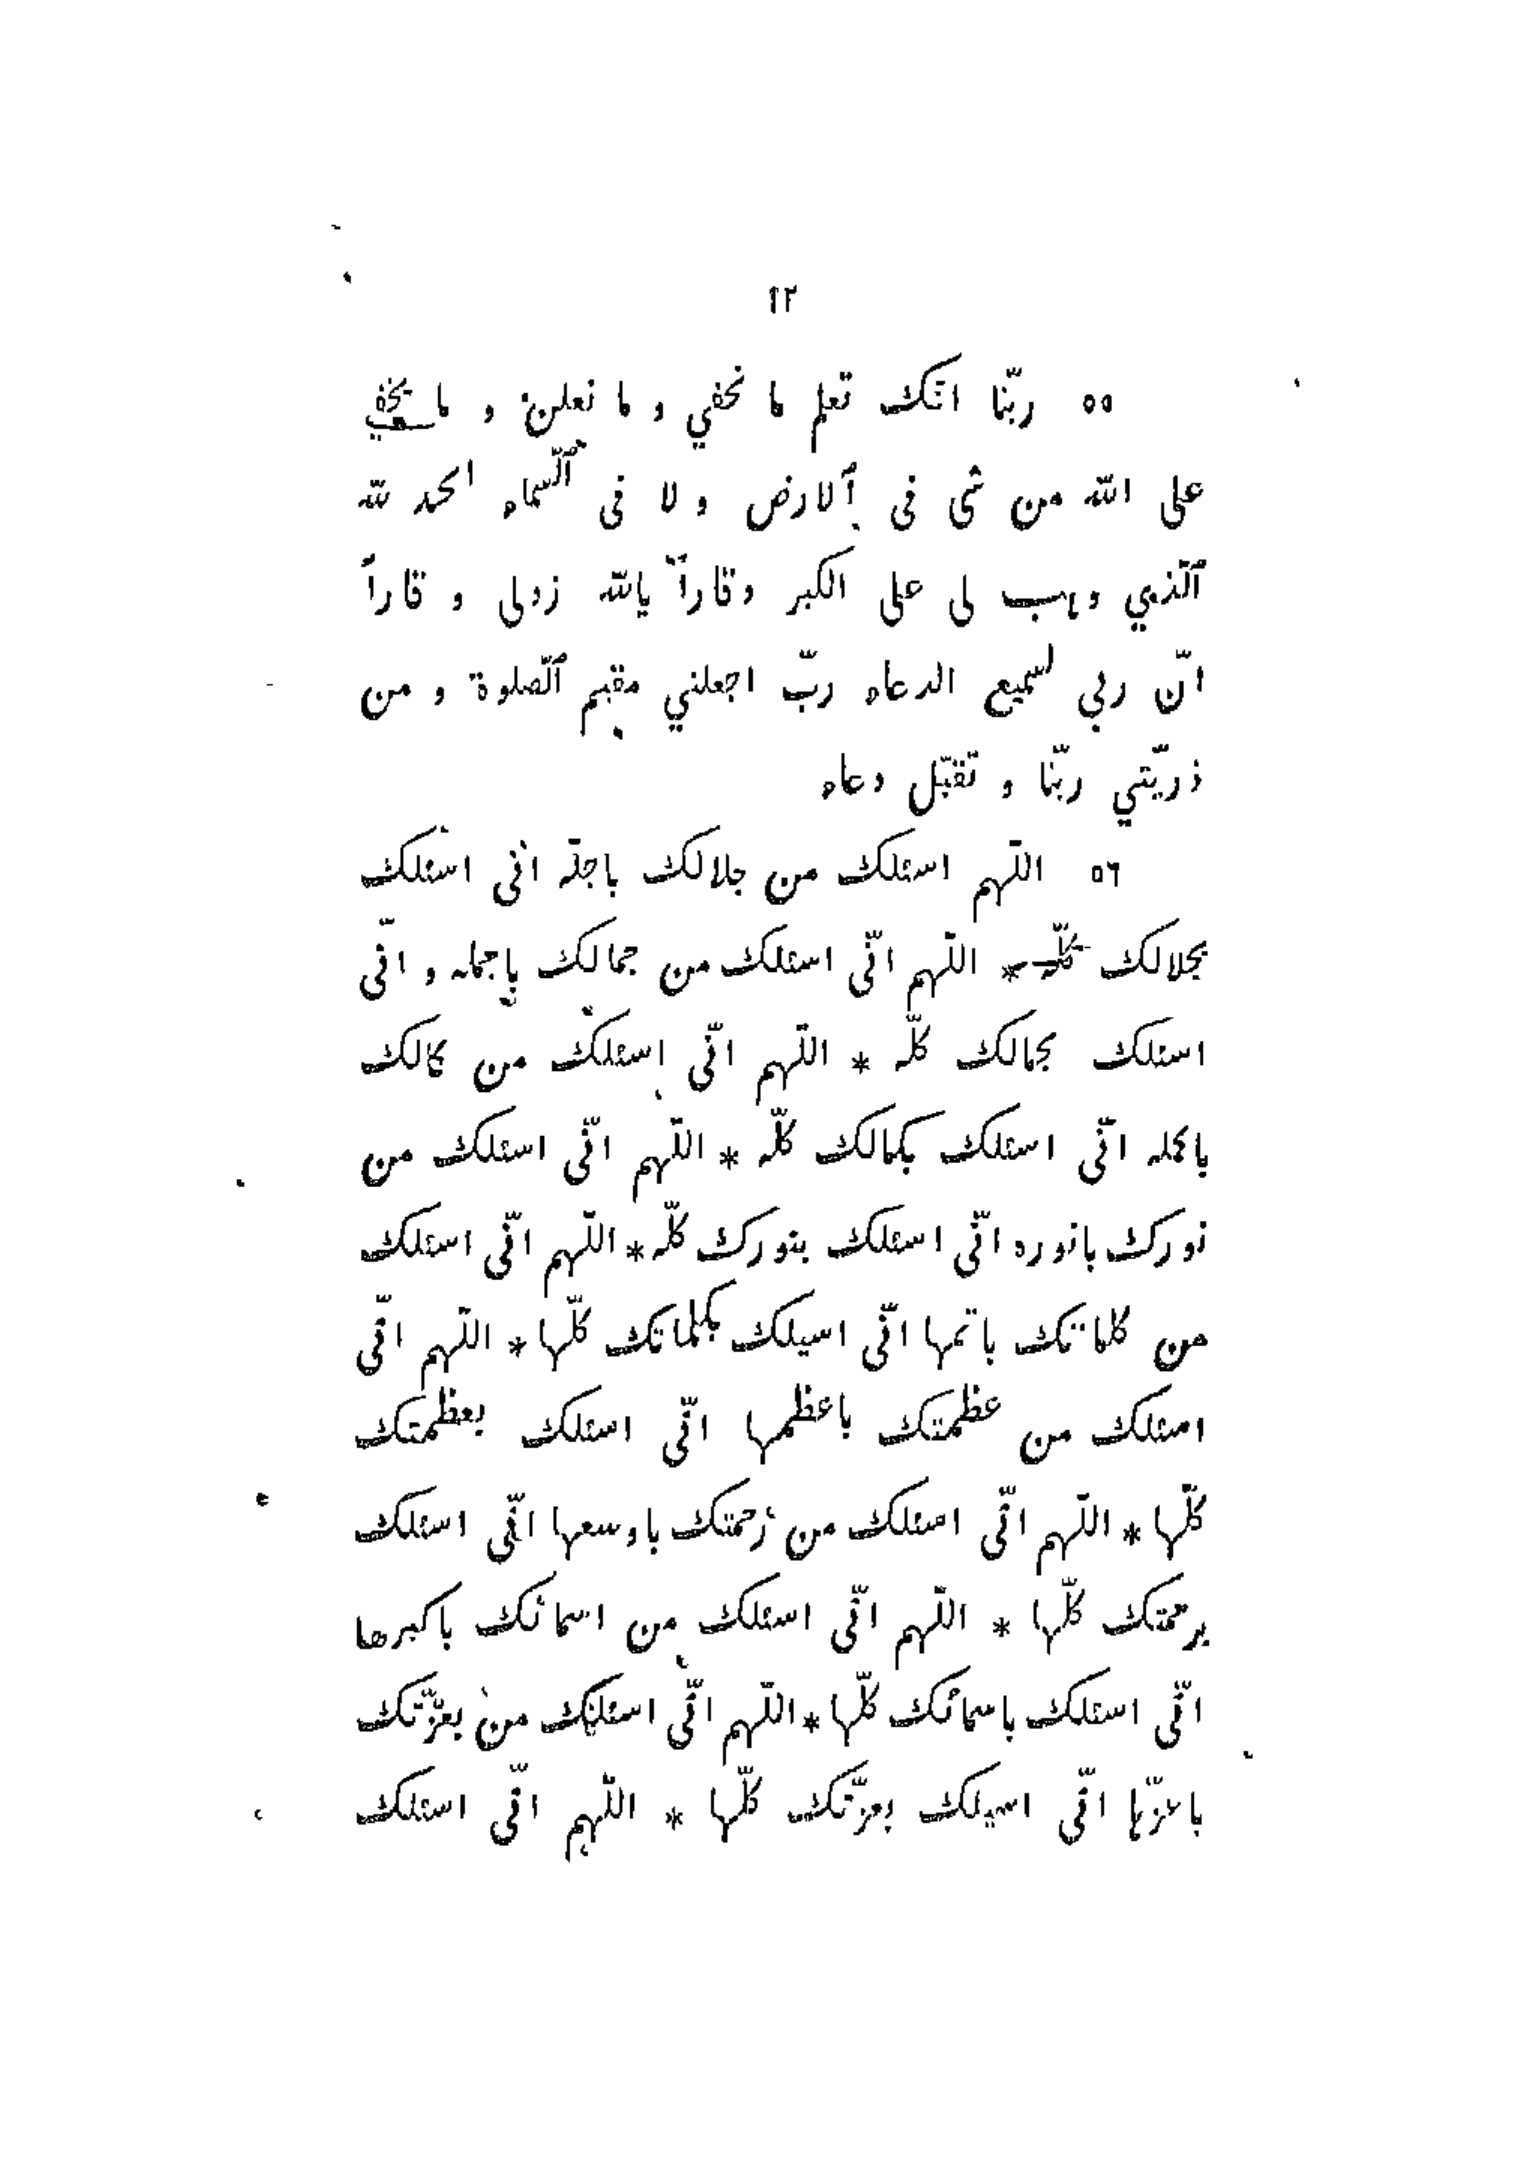 ٦٢
٥٥ ربّنا انّك تعلم ما نخفي و ما نعلن و ما يخفي
على اللّه من شى فى ٱلارض و لا فى ٱلسّماء الحمد للّه
ٱلّذي وهب لى على الكبر وقاراً ياللّه زدلى و قاراً
انّ ربي لسميع الدعاء ربّ اجعلني مقيم ٱلصّلوة و من
ذريّتي ربّنا و تقبّل دعاء
٥٦ اللّهم اسئلك من جلالك باجلّه انّى اسئلك
بجلالك كلّه * اللّهم انّى اسئلك من جمالك باجمله و انّى
اسئلك بجمالك كلّه * اللّهم انّى اسئلك من كمالك
باكمله انّى اسئلك بكمالك كلّه * اللّهم انّى اسئلك من
نورك بانوره انّى اسئلك بنورك كلّه * اللّهم انّى اسئلك
من كلماتك باتمها انّى اسيلك بكلماتك كلّها * اللّهم انّى
اسئلك من عظمتك باعظمها انّى اسئلك بعظمتك
كلّها * اللّهم انّى اسئلك من رحمتك باوسعها انّى اسئلك
برحمتك كلّها * اللّهم انّى اسئلك من اسمائك باكبرها
انّى اسئلك باسمائك كلّها * اللّهم انّى اسئلك من بعزّتك
باعزّها انّى اسيلك بعزّتك كلّها * اللّهم انّى اسئلك